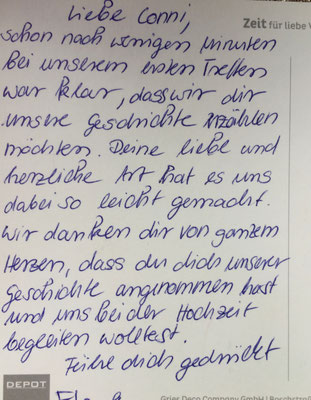 Liebe Conni,
Zeit für liebe
schon nach wenigen Minuten
bei unserem ersten Treffen
war klar, dass wir dir
unsere Geschichte erzählen
möchten. Deine liebe und
herzliche Art hat es uns
dabei so leicht gemacht.
Wir danken dir von ganzem
Herzen, dass du dich unserer
Geschichte angenommen hast
und uns bei der Hochzeit
begleiten wolltest.
Fühle dich gedrückt
DEPOT
Gries Deco Company GmbH